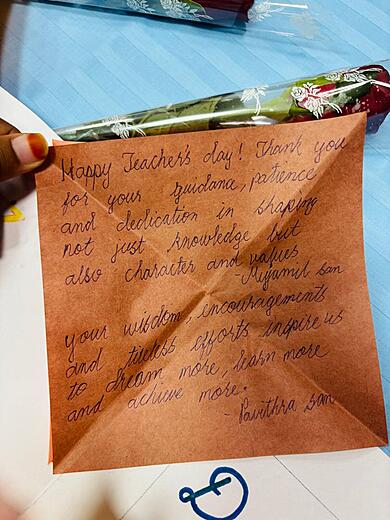 Happy Teacher's day! Thank you
for your guidance, patience
and dedication in shaping
not just knowledge but
also character and values
- Mffamil san
your wisdom, encouragements
and tireless efforts inspire us
to dream more, learn more
and achieve more.
- Pavithra san